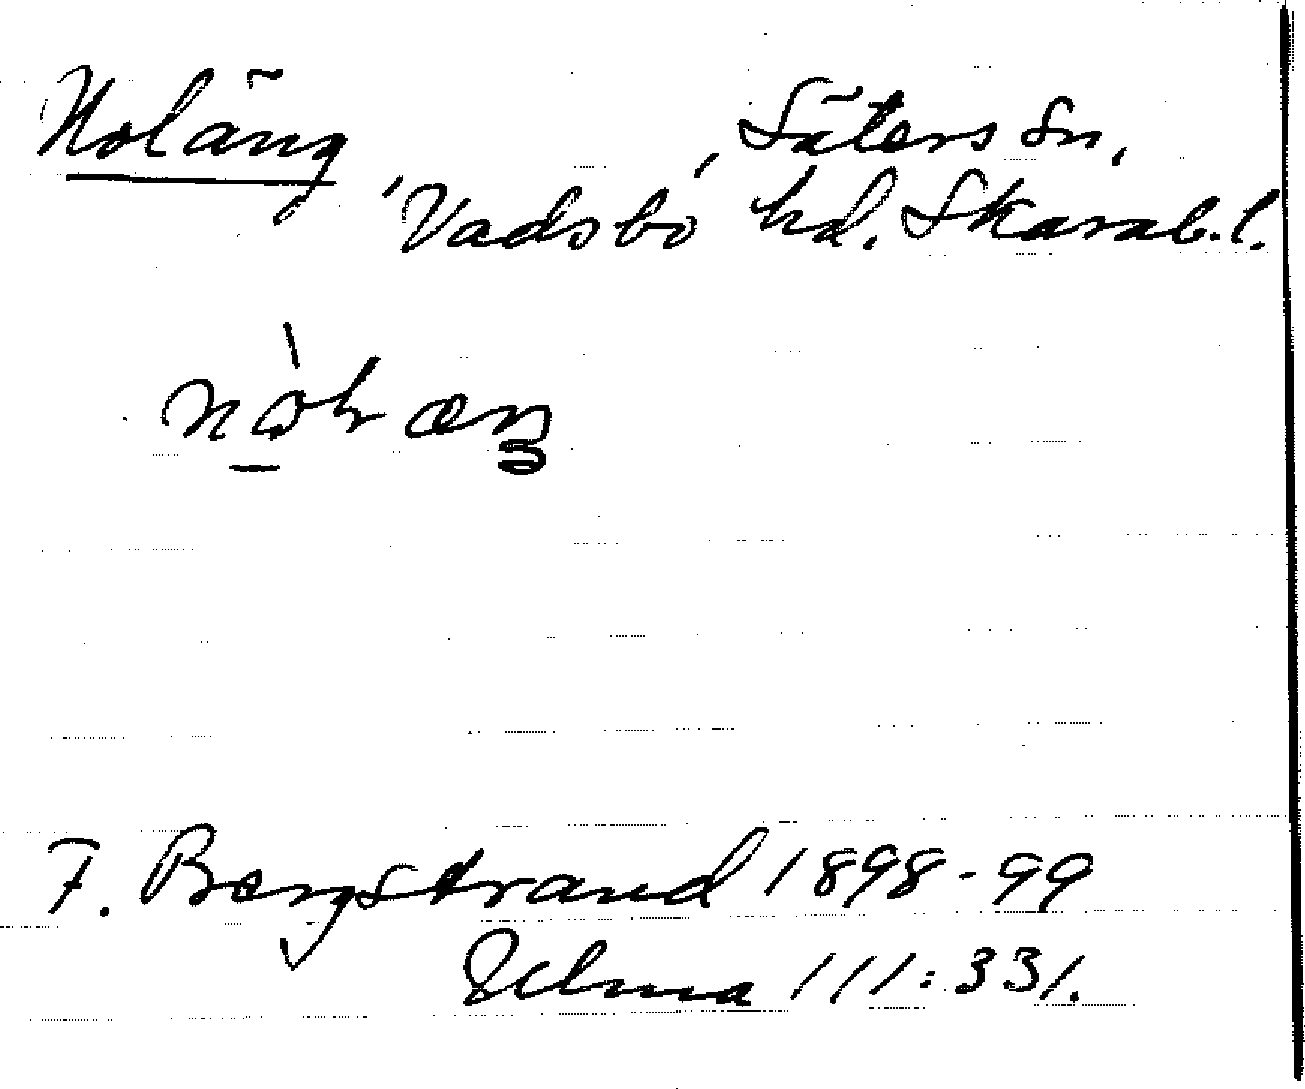 Noläng, Säters sn,
Vadsbo hd. Skarab. l.
F. Bergstrand 1898-99
Ulma 111:331.